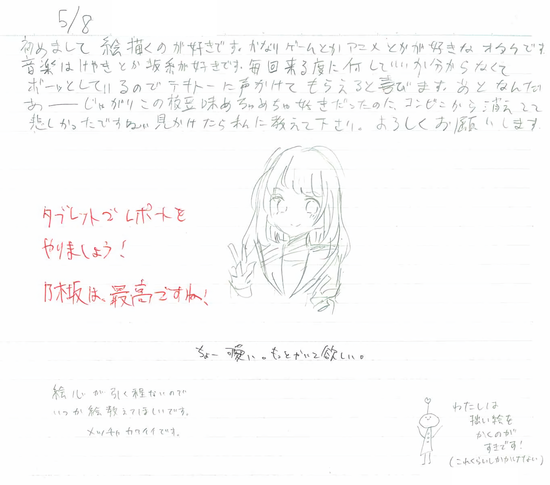 5/8
初めまして 絵描くのが好きです。かなりゲームとかアニメとかが好きなオタクです
音楽はけやきとか坂系が好きです。毎回来る度に何していいか分からなくて
ボーッとしているのでテキトーに声かけてもらえると喜びます。あとなんだ
あーーじゃがりこの枝豆味めちゃめちゃ好きだったのに、コンビニから消えてて
悲しかったですね、見かけたら私に教えて下さい。よろしくお願いします
タブレットでレポートを
やりましょう!
乃木坂は、最高ですね!
ちょー可愛い。もっとかいて欲しい。
絵心が引く程ないので
いつか絵教えてほしいです。
メッチャカワイイです。
わたしは
拙い絵を
かくのが
すきです!
(これくらいしかかけない)